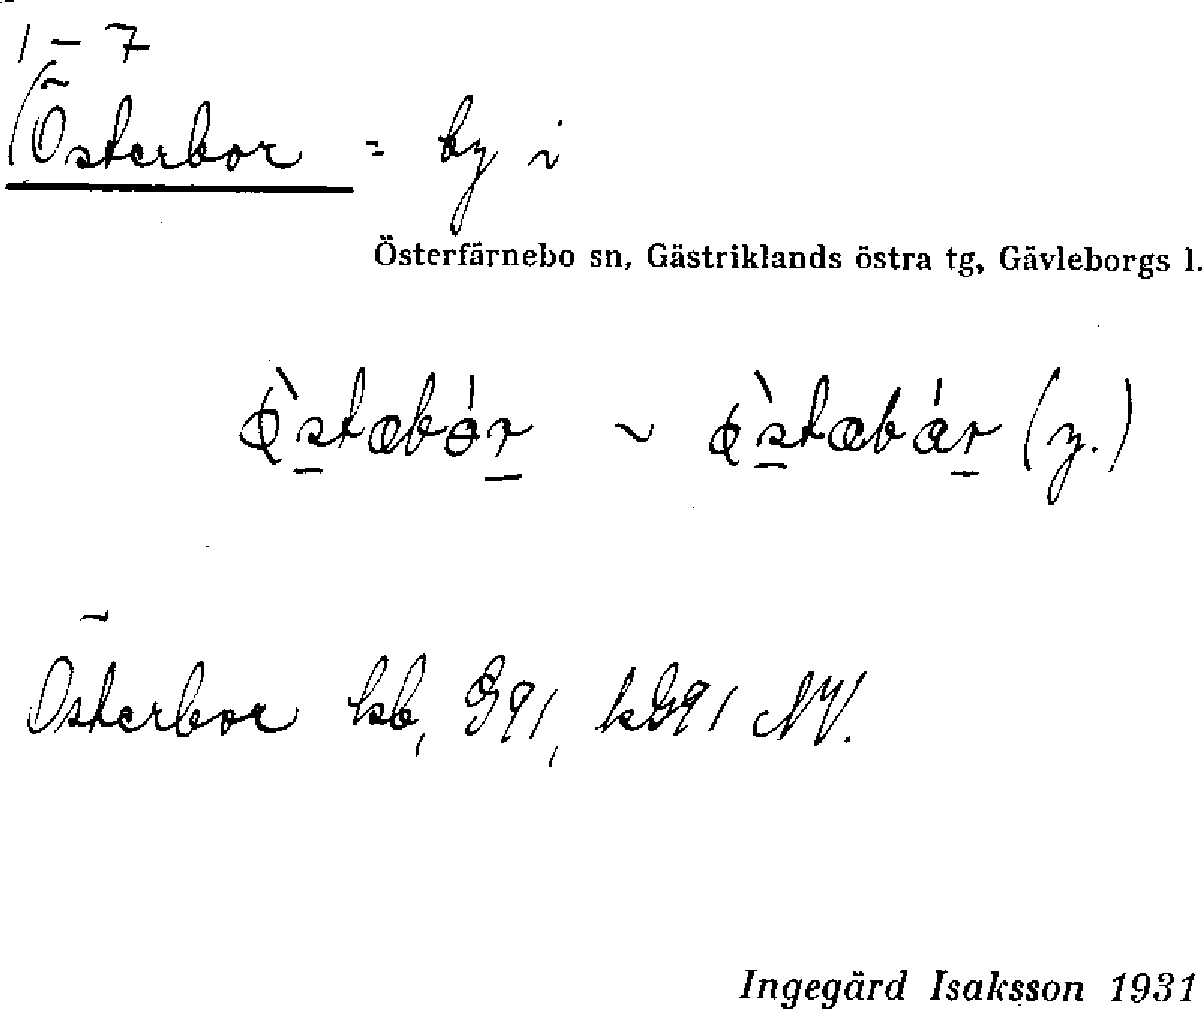 1 – 7
(Österbor = by i
Österfärnebo sn, Gästriklands östra tg, Gävleborgs l.
~ (y.)
Österbor kb, G91, kG91 NV.
Ingegärd Isaksson 1931